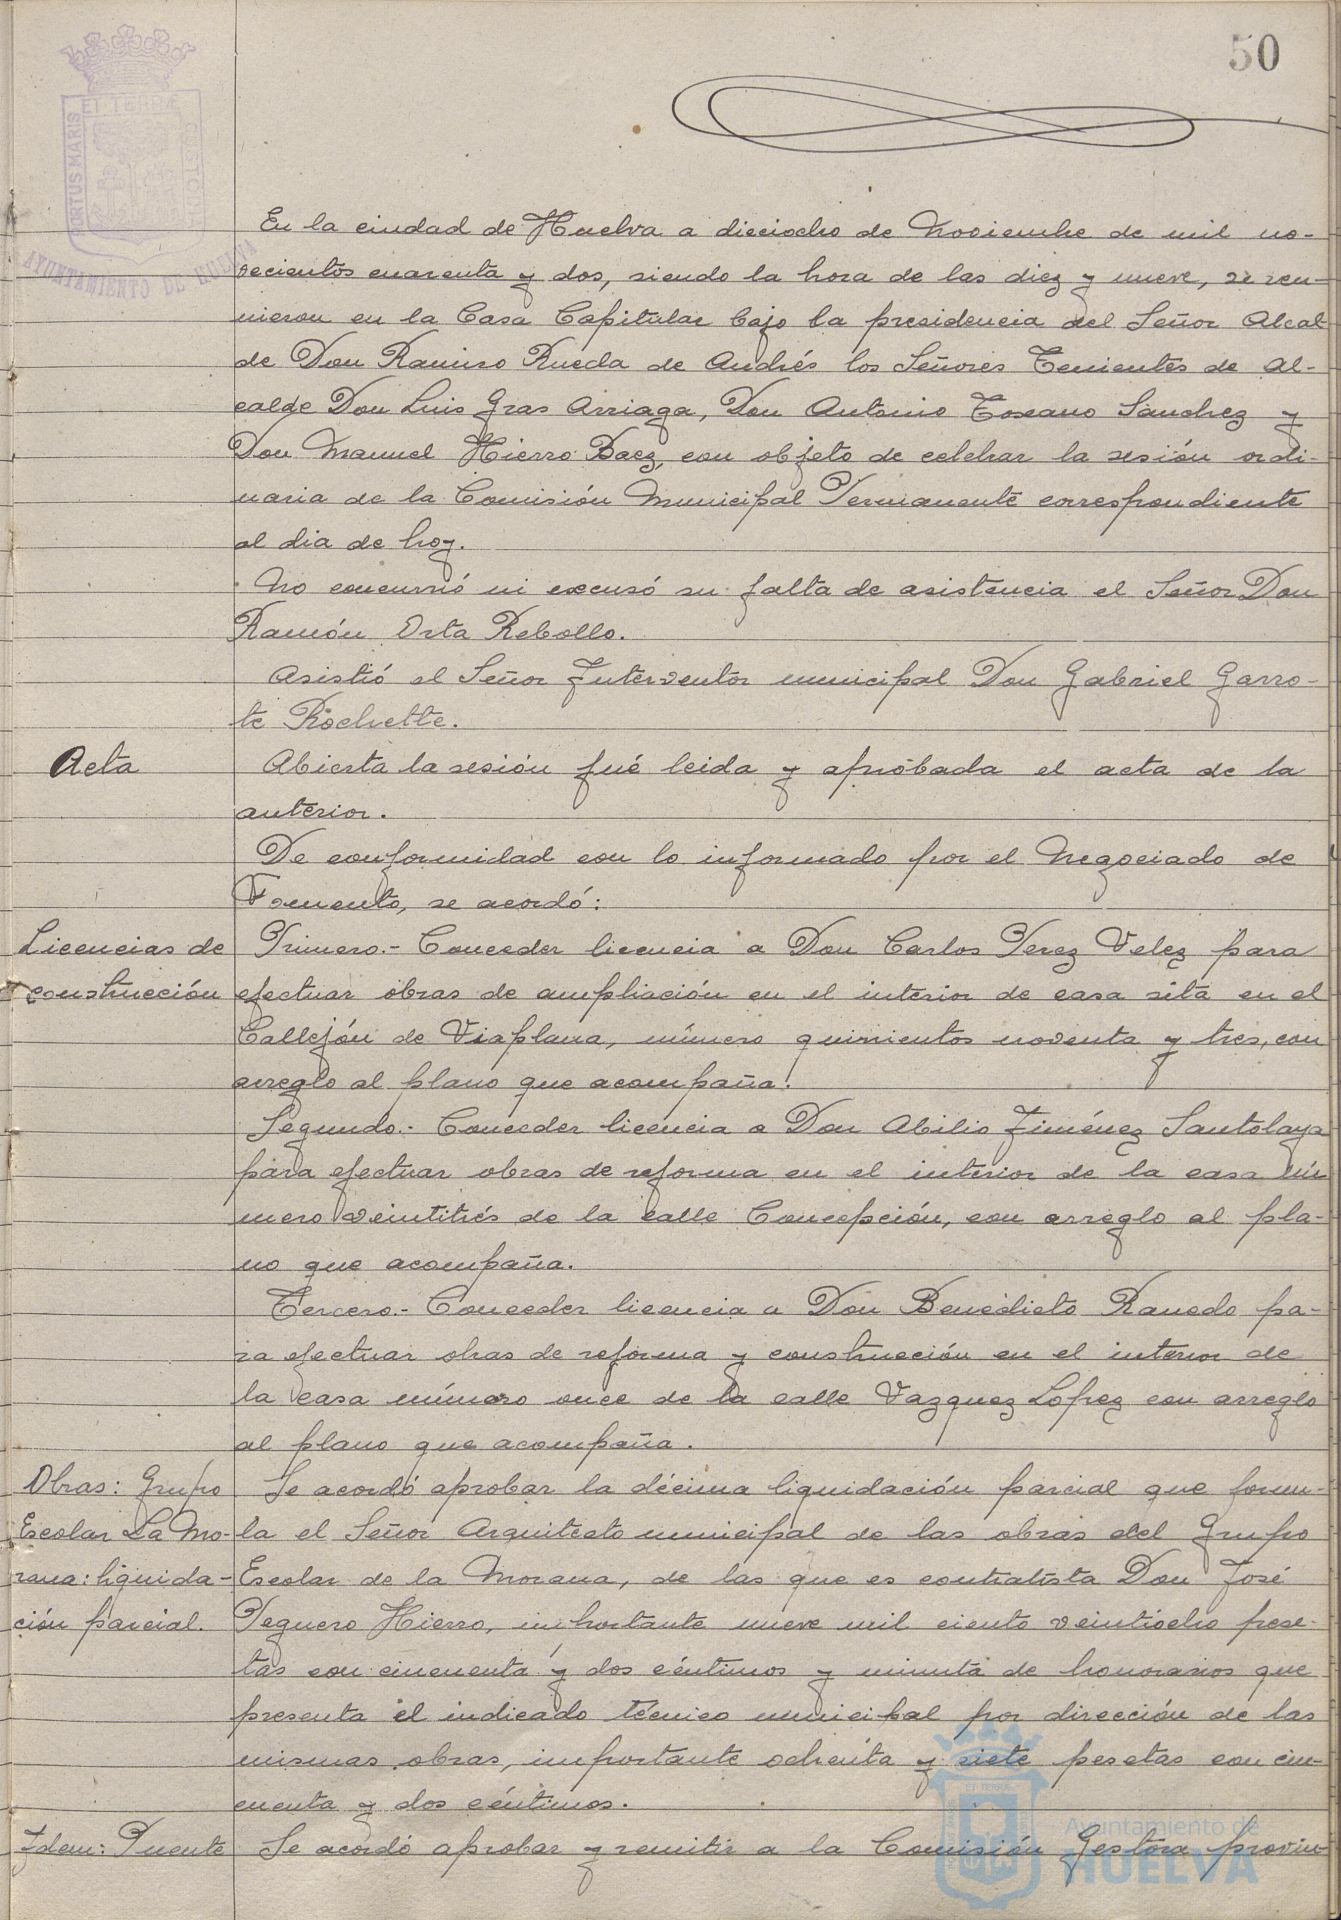 50
PORTUS MARIS ET TERRÆ CUSTODIA
AYUNTAMIENTO DE HUELVA
En la ciudad de Huelva a dieciocho de Noviembre de mil no-
vecientos cuarenta y dos, siendo la hora de las diez y nueve, se reu-
nieron en la Casa Capitular bajo la presidencia del Señor Alcal-
de Don Ramiro Rueda de Andrés los Señores Tenientes de Al-
calde Don Luis Gras Arriaga, Don Antonio Toscano Sánchez y
Don Manuel Hierro Baez, con objeto de celebrar la sesión ordi-
naria de la Comisión Municipal Permanente correspondiente
al dia de hoy.
No concurrió ni excusó su falta de asistencia el Señor Don
Ramón Orta Rebollo.
Asistió el Señor Interventor municipal Don Gabriel Garro-
te Rochette.
Acta
Abierta la sesión fué leida y aprobada el acta de la
anterior.
De conformidad con lo informado por el Negociado de
Fomento, se acordó:
Licencias de
construcción
Primero.- Conceder licencia a Don Carlos Perez Velez para
efectuar obras de ampliación en el interior de casa sita en el
Callejón de Viaplana, número quinientos noventa y tres, con
arreglo al plano que acompaña.
Segundo.- Conceder licencia a Don Abilio Jiménez Santolaya
para efectuar obras de reforma en el interior de la casa nú-
mero veintitrés de la calle Concepción, con arreglo al pla-
no que acompaña.
Tercero.- Conceder licencia a Don Benedicto Ranedo pa-
ra efectuar obras de reforma y construcción en el interior de
la casa número once de la calle Vazquez Lopez con arreglo
al plano que acompaña.
Obras: Grupo
Escolar La Mo-
rana: liquida-
ción parcial.
Se acordó aprobar la décima liquidación parcial que formu-
la el Señor Arquitecto municipal de las obras del Grupo
Escolar de la Morana, de las que es contratista Don José
Peguero Hierro, importante nueve mil ciento veintiocho pese-
tas con cincuenta y dos céntimos y minuta de honorarios que
presenta el indicado técnico municipal por dirección de las
mismas obras, importante ochenta y siete pesetas con cin-
cuenta y dos céntimos.
Idem: Puente
Se acordó aprobar y remitir a la Comisión Gestora provin-
Ayuntamiento de
HUELVA